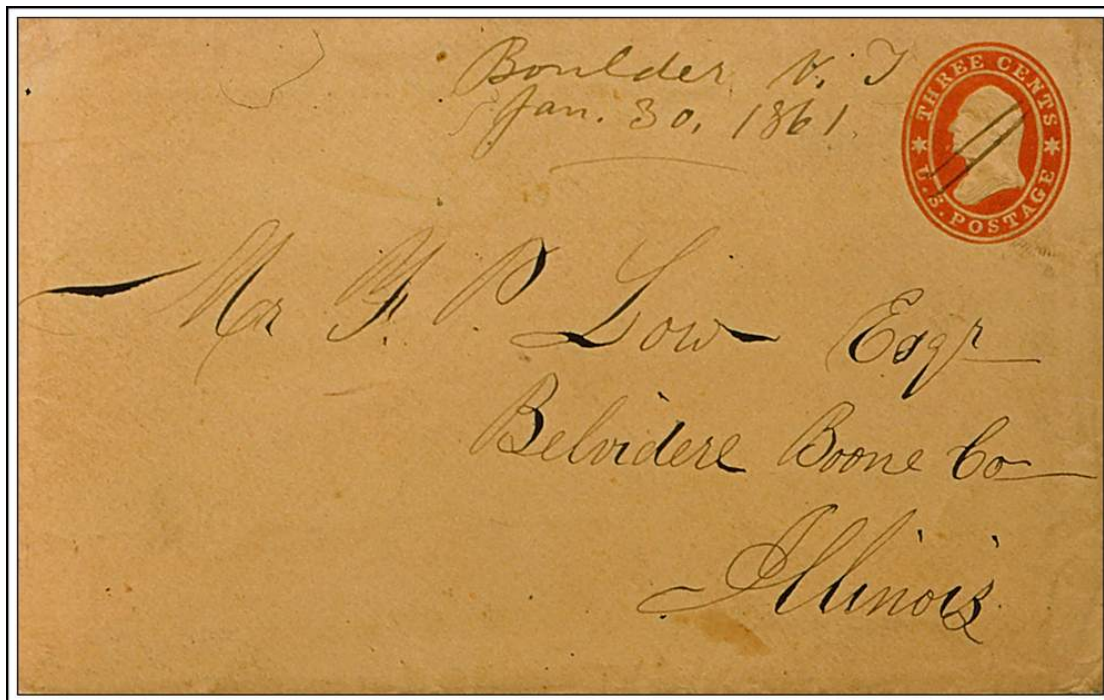 Boulder N. T
Jan. 30. 1861.
THREE CENTS
U.S. POSTAGE
Mr F. P. Low Esqr
Belvidere Boone Co
Illinois